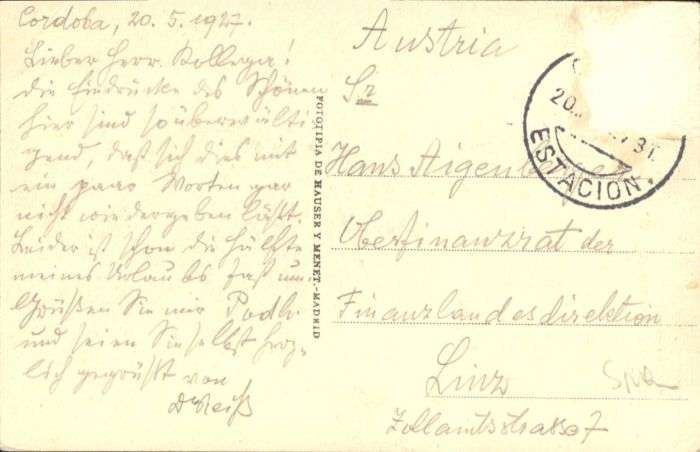 Cordoba, 20. 5. 1927.
Lieber Herr Kollega!
die Eindrücke des Schönen
hier sind so überwälti-
gend, daß sich dies mit
ein paar Worten gar
nicht wiedergeben läßt.
Leider ist schon die Hälfte
meines Urlaubs fast um.
Grüßen Sie mir
und seien Sie selbst herz-
lich gegrüßt von
FOTOTIPIA DE HAUSER Y MENET.-MADRID
Austria
Sr
Hans
Oberfinanzrat der
Finanzlandesdirektion
Linz
Zollamtsstrasse 7
20.
31.
ESTACION